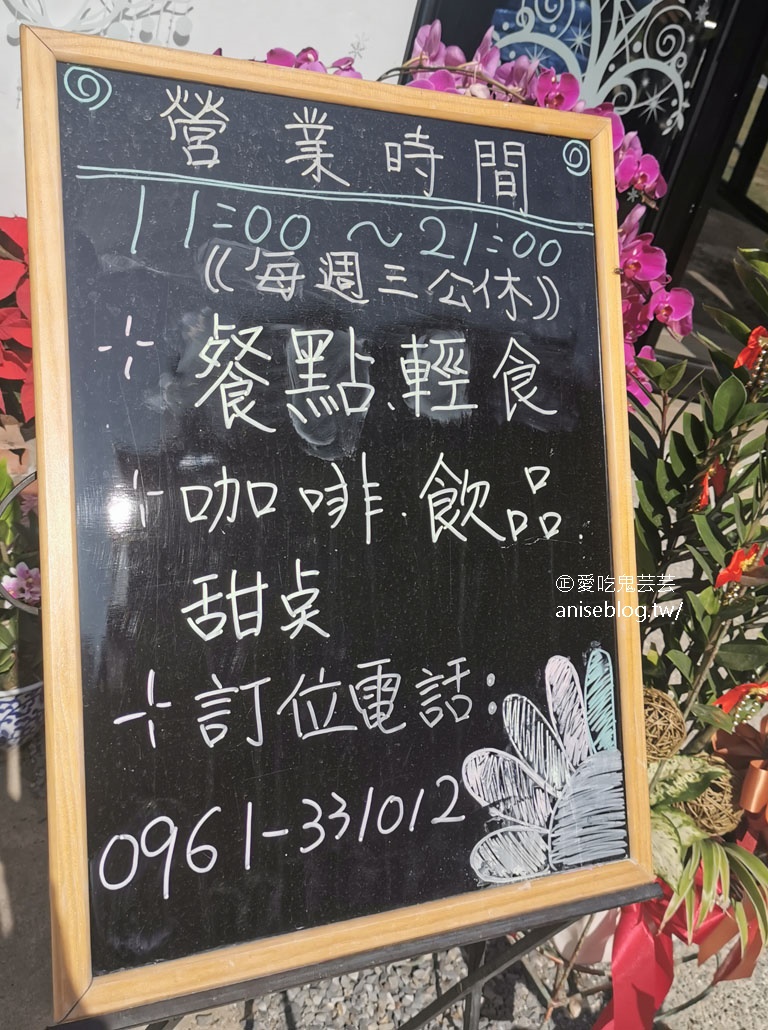 營業時間
11:00 ～ 21:00
《每週三公休》
餐點、輕食
咖啡．飲品．
甜点
訂位電話：
0961-331012
㊣愛吃鬼芸芸
aniseblog.tw/